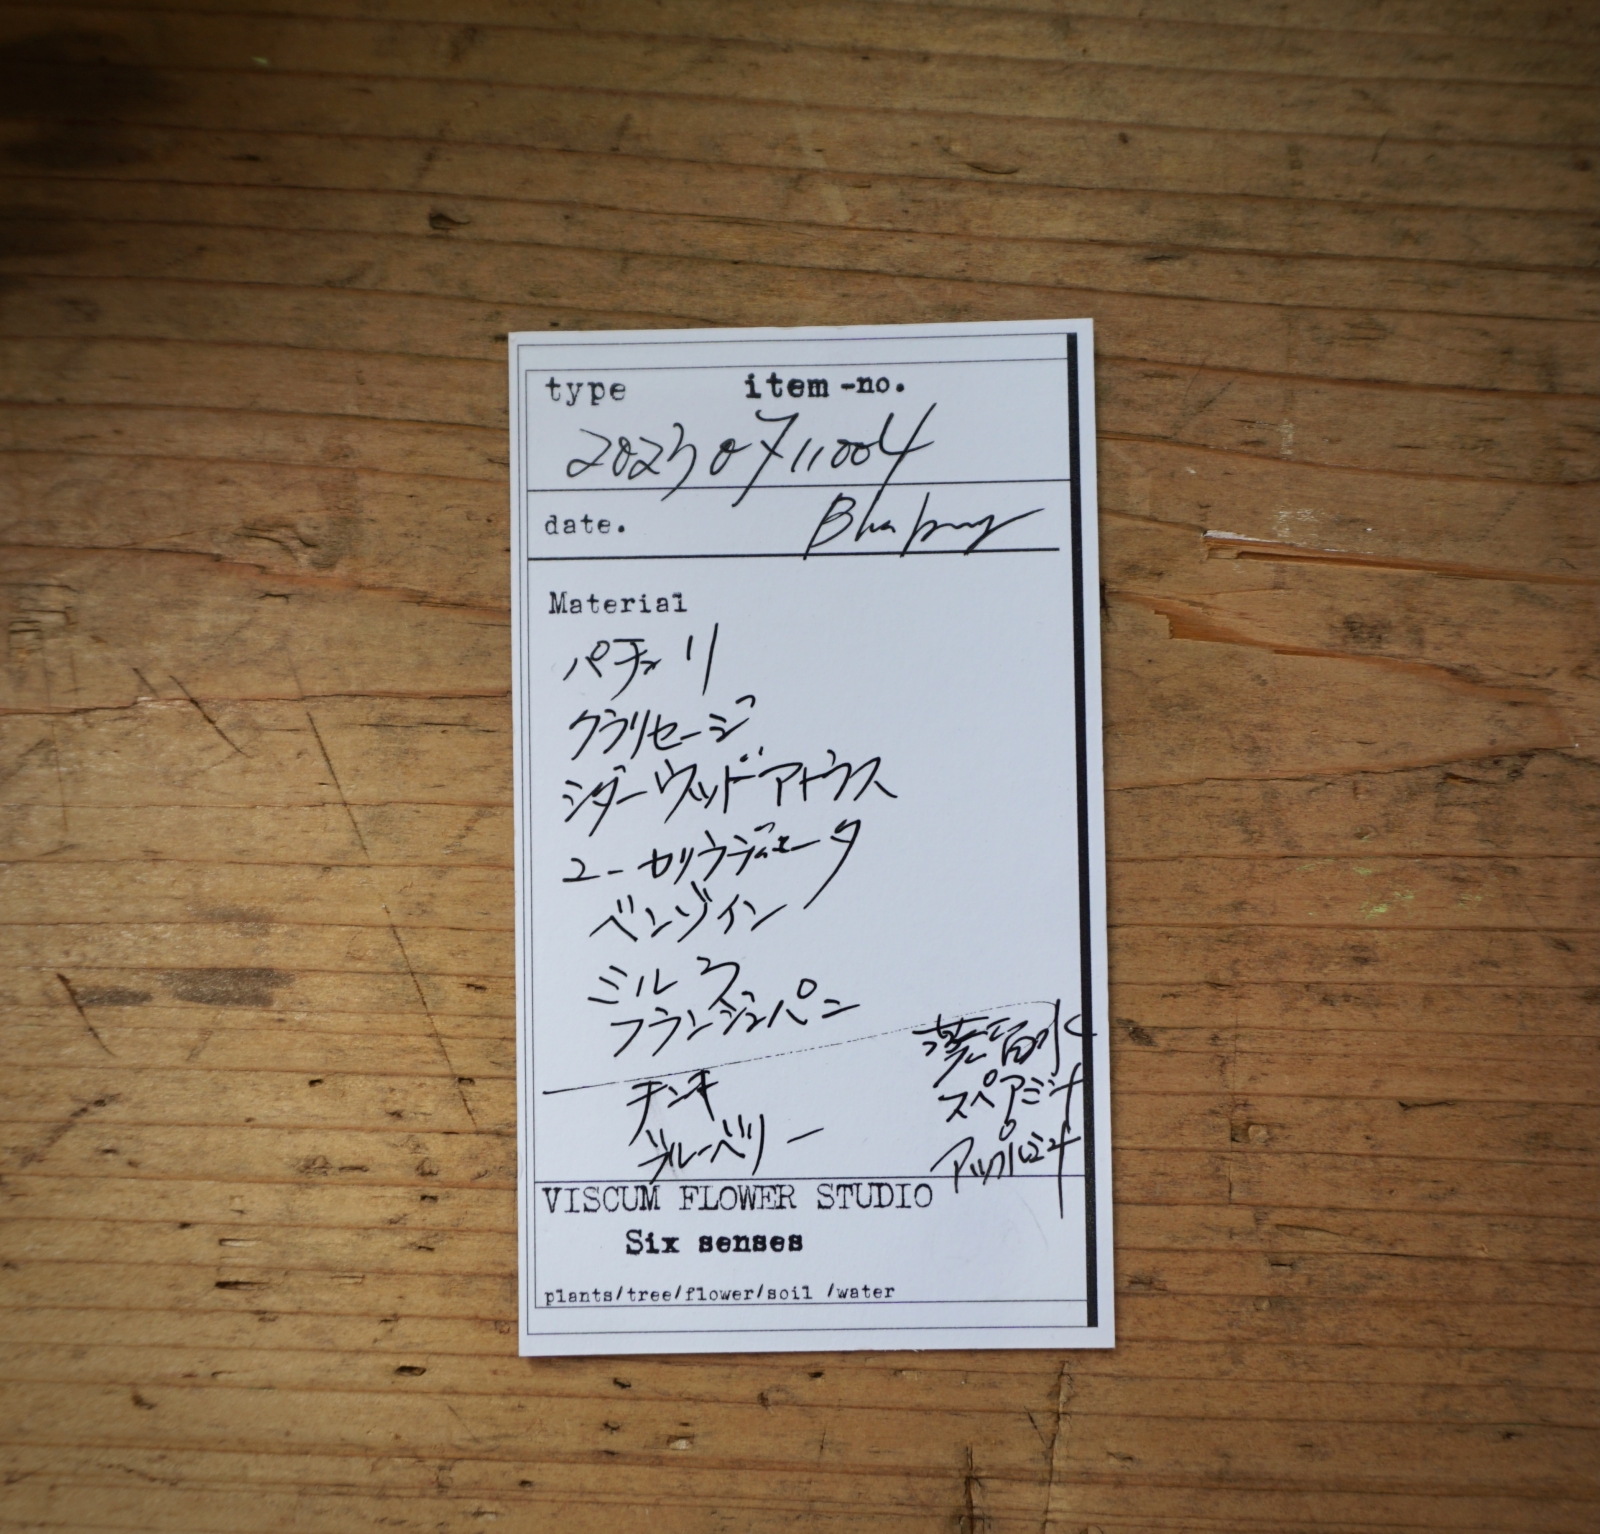 type item-no.
20230711004
date.
Material
パチュリ
クラリセージ
シダーウッドアトラス
ユーカリラディエータ
ベンゾイン
ミルラ
フランジュパン
チンキ
ブルーベリー
蒸留水
スペアミント
アップルミント
VISCUM FLOWER STUDIO
Six senses
plants/tree/flower/soil /water